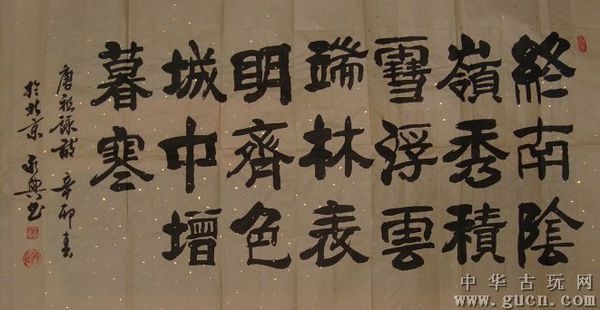 終南陰
嶺秀積
雪浮雲
端林表
明齊色
城中增
暮寒
唐祖詠詩 辛卯春
於北京 书
中华古玩网
www.gucn.com